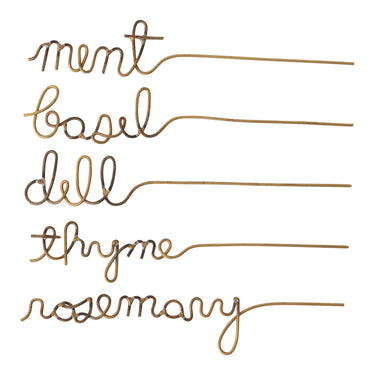 mint
basil
dill
thyme
rosemary